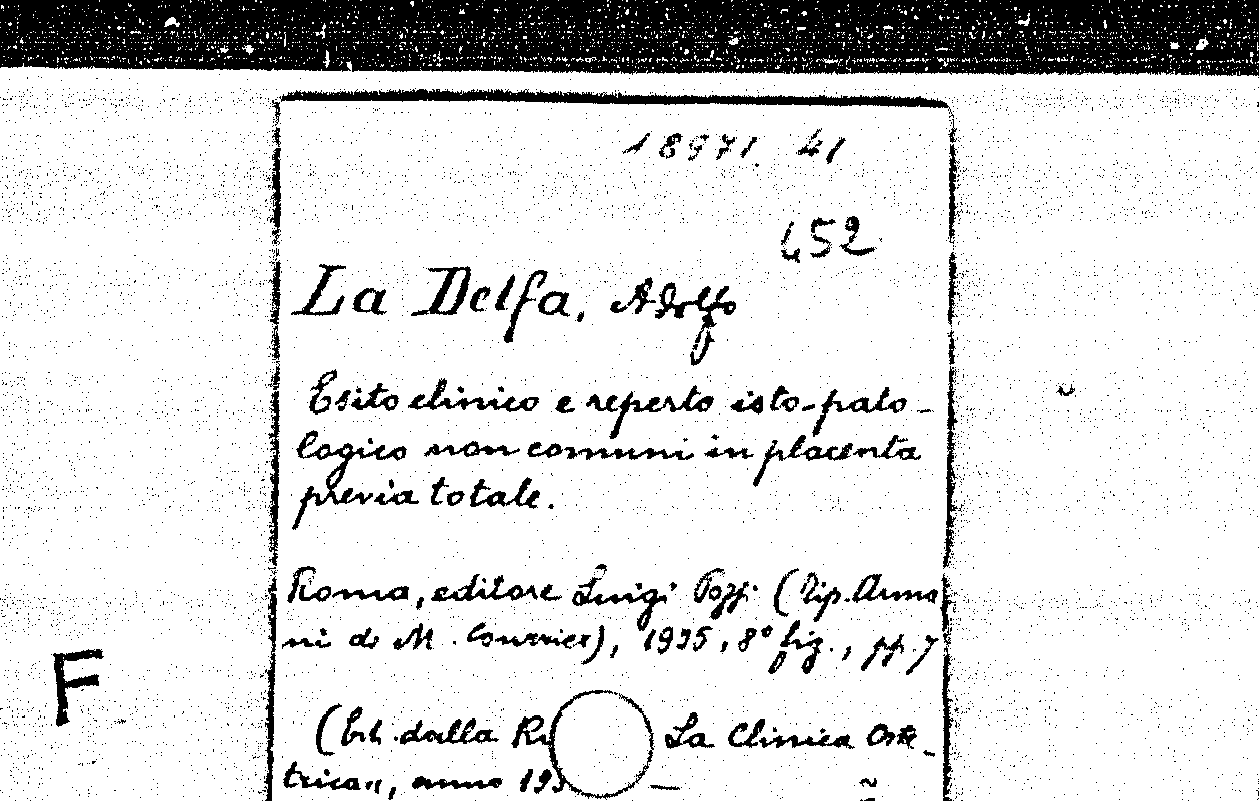 18971 41
452
La Delfa, Adolfo
Esito clinico e reperto isto-pato-
logico non comuni in placenta
previa totale.
Roma, editore Luigi Pozzi (Tip. Arma
ni di M. Courrier), 1935, 8° fig., pp. 7
F
(Estr. dalla La Clinica Oste-
trica", anno